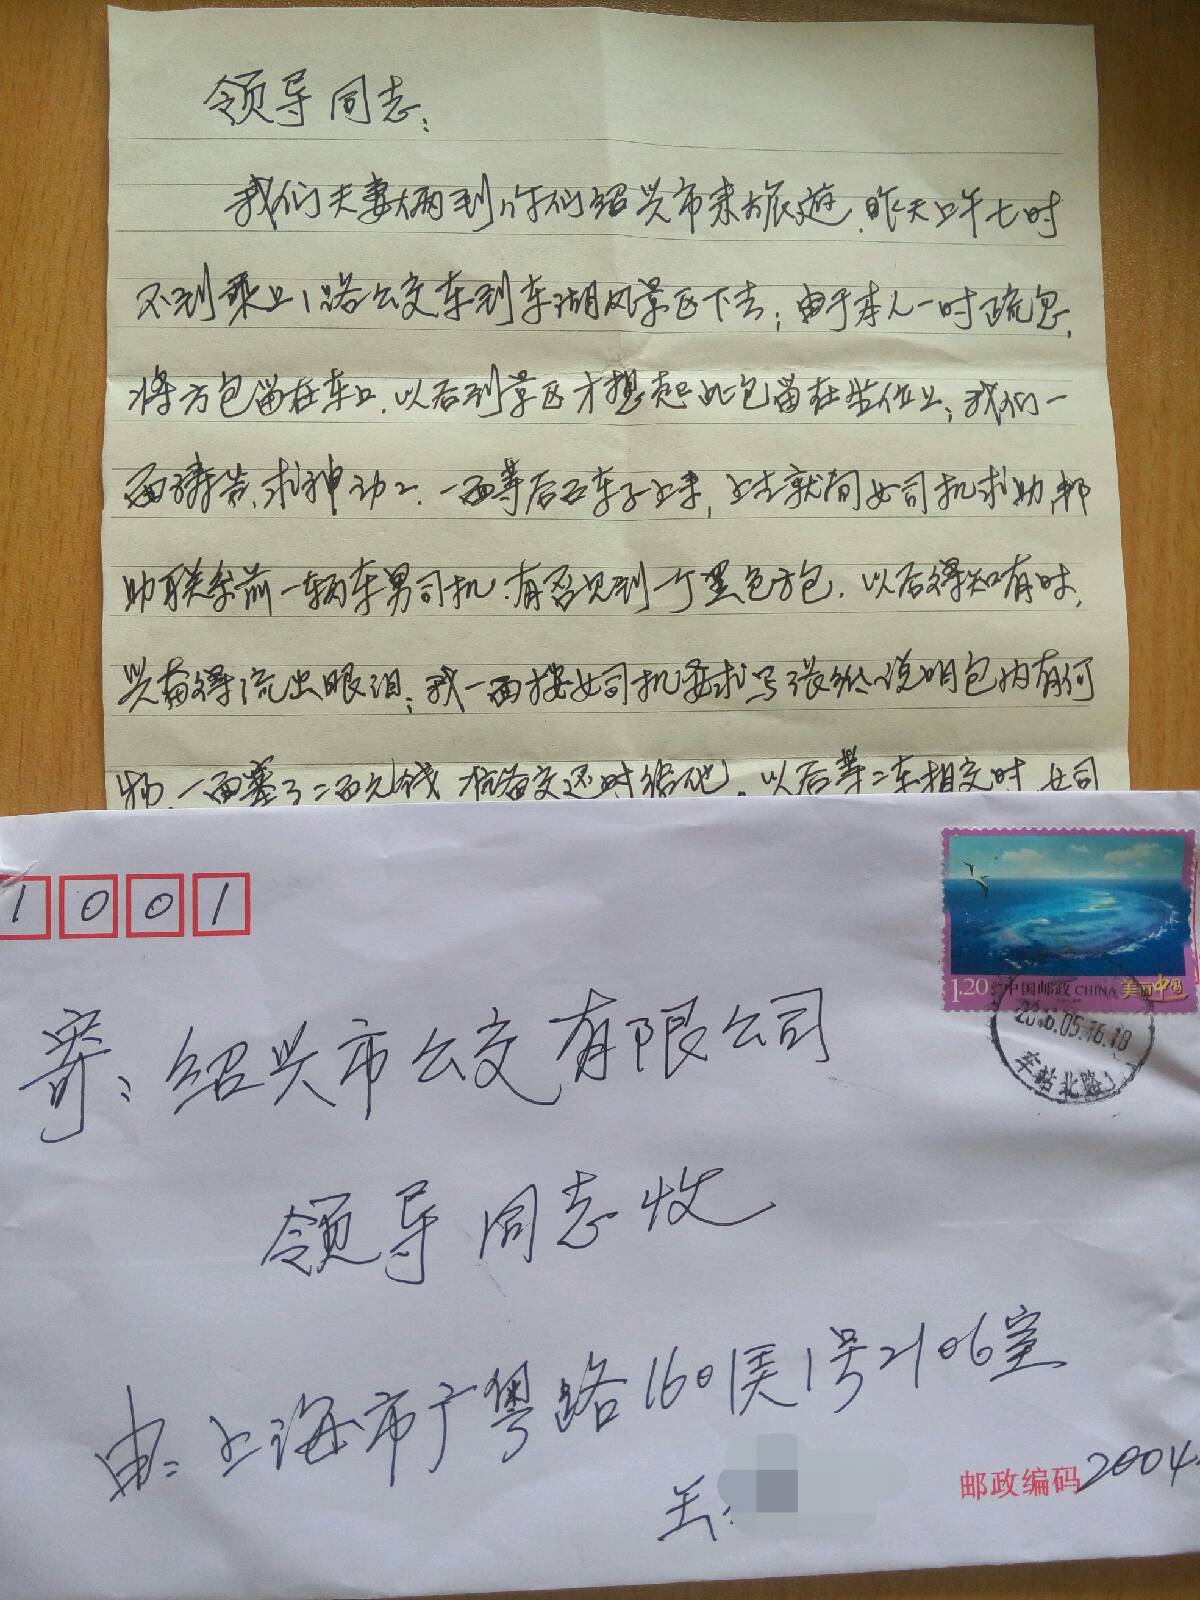 领导同志:
我们夫妻俩到你们绍兴市来旅遊,昨天上午七时
不到乘上1路公交车到东湖风景区下去;由于本人一时疏忽,
将方包留在车上,以后到景区才想起此包留在坐位上;我们一
面祷告,求神功,一面等后面车子上来,上去就向女司机求助,帮
助联系前一辆车男司机,有否见到一个黑色方包,以后得知有时,
兴奋得流出眼泪;我一面按女司机要求写张纸说明包内有何
物,一面塞了二百元钱 准备交还时给他,以后等二车相交时,女司
1001
寄:绍兴市公交有限公司
领导同志收
由:上海市广粤路160弄1号2106室
王:
邮政编码2004
1.20 中国邮政 CHINA 美丽中国
2016.05.16.18
车站北路